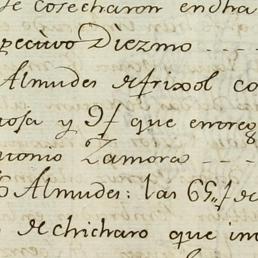 se cosecharon endha
pecivo Diezmo
Almudes de frixol co
y 9f que
Antonio Zamora
Almudes: las 65,,f de
de chicharo que im